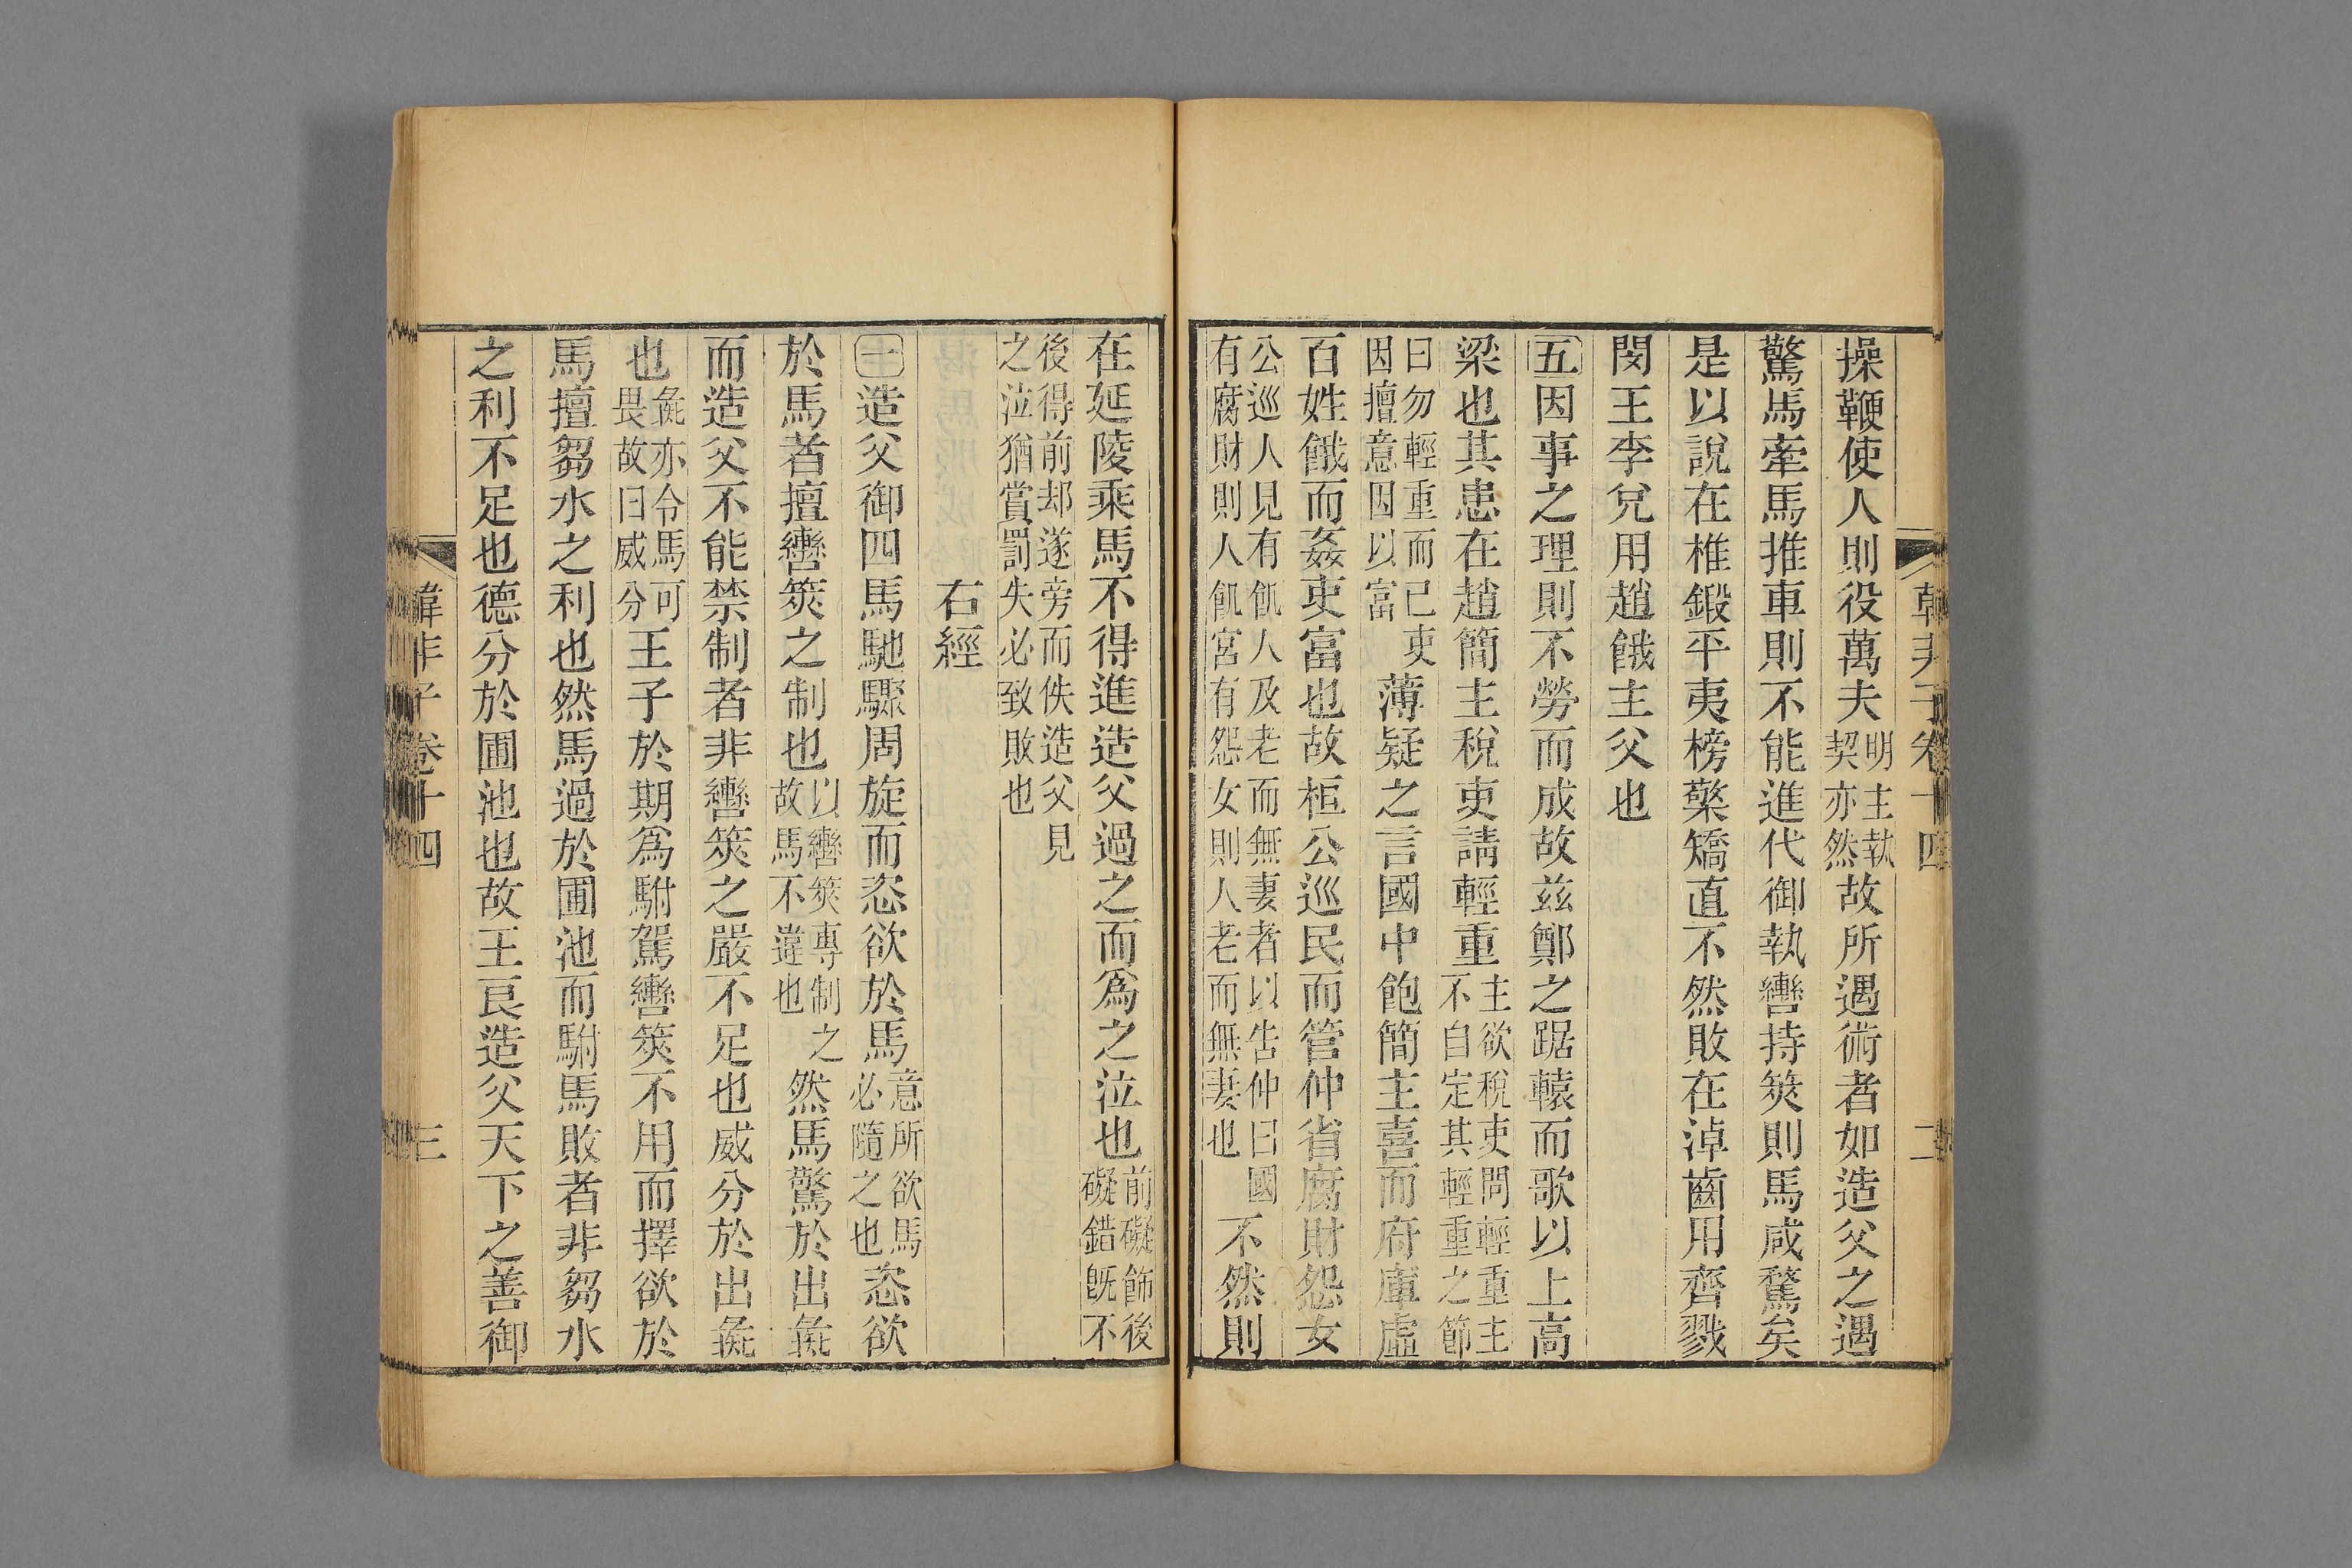 操鞭使人則役萬夫明主執契亦然故所遇術者如造父之遇
驚馬牽馬推車則不能進代御執轡持筴則馬咸騖矣
是以說在椎鍛平夷榜檠矯直不然敗在淖齒用齊戮
閔王李兌用趙餓主父也
五因事之理則不勞而成故兹鄭之踞轅而歌以上高
梁也其患在趙簡主稅吏請輕重主欲稅吏問輕重主不自定其輕重之節
曰勿輕重而已吏因擅意因以富薄疑之言國中飽簡主喜而府庫虛
百姓餓而姦吏富也故桓公巡民而管仲省腐財怨女
公巡人見有飢人及老而無妻者以告仲曰國有腐財則人飢宮有怨女則人老而無妻也不然則
韓非子卷十四 二
在延陵乘馬不得進造父過之而爲之泣也前礙飾後礙錯旣不
後得前却遂旁而佚造父見之泣猶賞罰失必致敗也
右經
一造父御四馬馳驟周旋而恣欲於馬意所欲馬必隨之也恣欲
於馬者擅轡筴之制也以轡筴專制之故馬不違也然馬驚於出彘
而造父不能禁制者非轡筴之嚴不足也威分於出彘
也彘亦令馬可畏故曰威分王子於期爲駙駕轡筴不用而擇欲於
馬擅芻水之利也然馬過於圃池而駙馬敗者非芻水
之利不足也德分於圃池也故王良造父天下之善御
韓非子卷十四 三